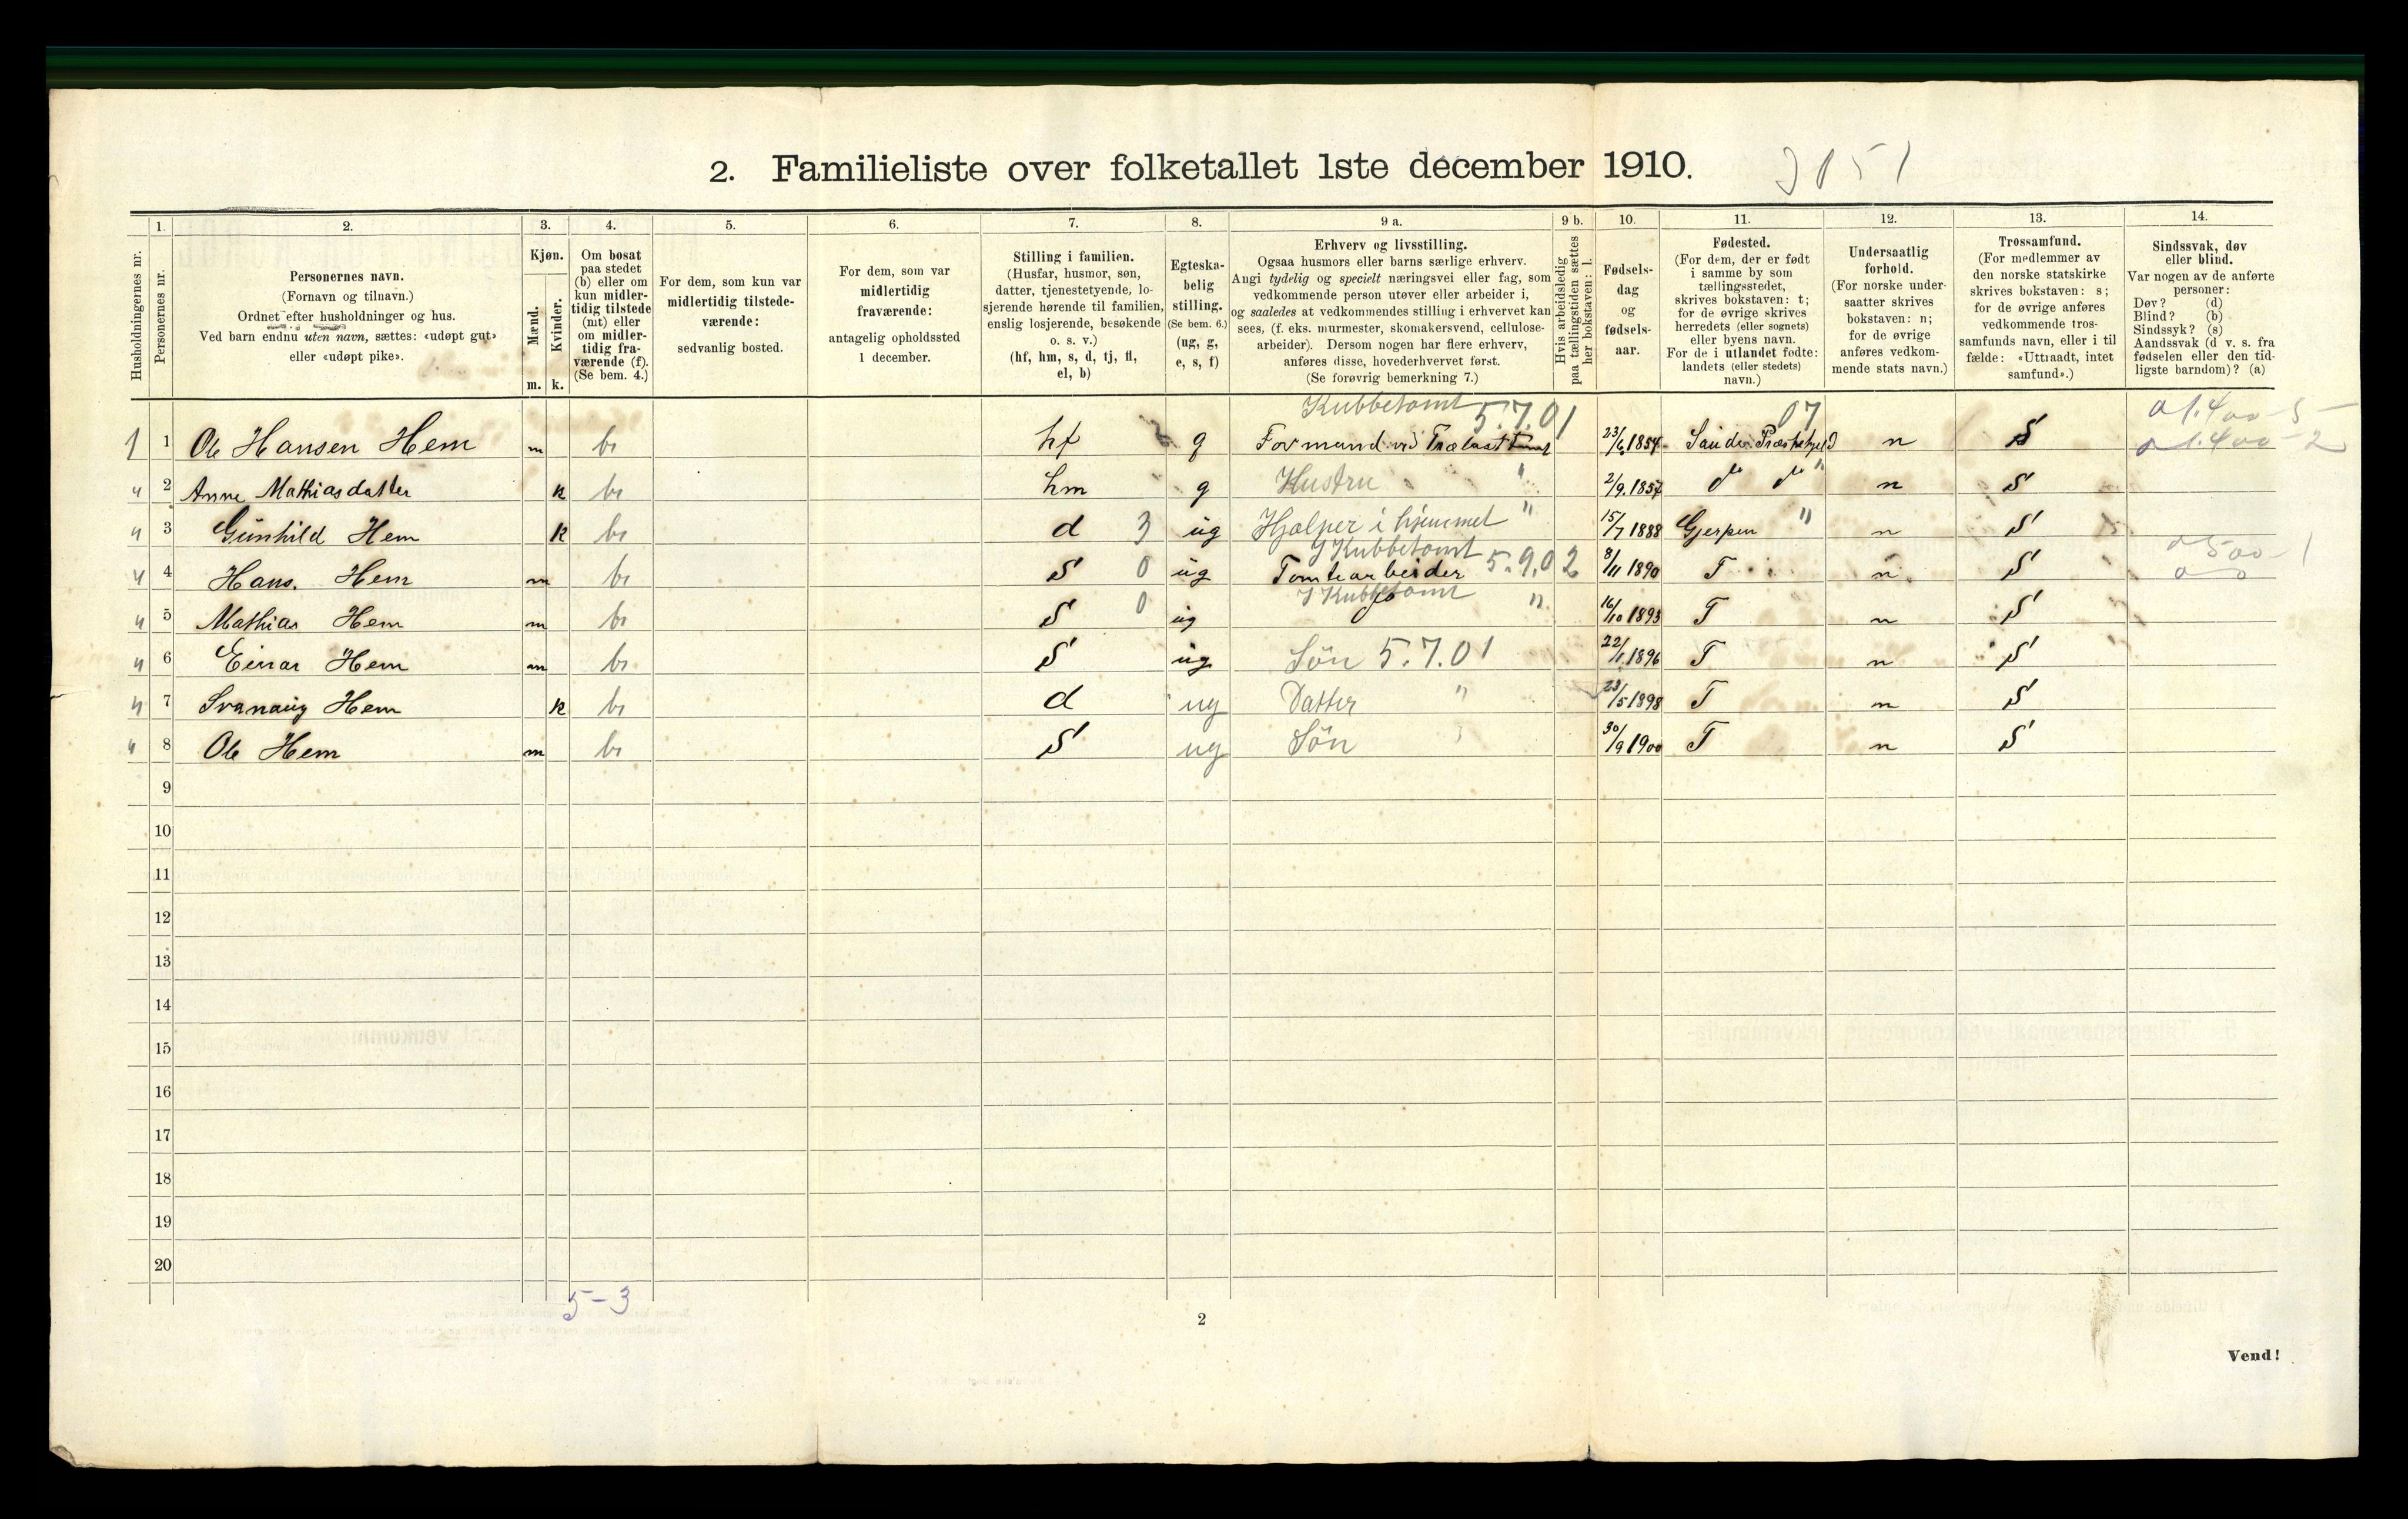 2. Familieliste over folketallet 1ste december 1910.
1. 2. 3. 4. 5. 6. 7. 8. 9 a. 9 b. 10. 11. 12. 13. 14.
Husholdningernes nr.
Personernes nr.
Personernes navn.
(Fornavn og tilnavn.)
Ordnet efter husholdninger og hus.
Ved barn endnu uten navn, sættes: «udøpt gut»
eller «udøpt pike».
Kjøn.
Mænd.
Kvinder.
m. k.
Om bosat
paa stedet
(b) eller om
kun midler-
tidig tilstede
(mt) eller
om midler-
tidig fra-
værende (f).
(Se bem. 4.)
For dem, som kun var
midlertidig tilstede-
værende:
sedvanlig bosted.
For dem, som var
midlertidig
fraværende:
antagelig opholdssted
1 december.
Stilling i familien.
(Husfar, husmor, søn,
datter, tjenestetyende, lo-
sjerende hørende til familien,
enslig losjerende, besøkende
o. s. v.)
(hf, hm, s, d, tj, fl,
el, b)
Egteska-
belig
stilling.
(Se bem. 6.)
(ug, g,
e, s, f)
Erhverv og livsstilling.
Ogsaa husmors eller barns særlige erhverv.
Angi tydelig og specielt næringsvei eller fag, som
vedkommende person utøver eller arbeider i,
og saaledes at vedkommendes stilling i erhvervet kan
sees, (f. eks. murmester, skomakersvend, cellulose-
arbeider). Dersom nogen har flere erhverv,
anføres disse, hovederhvervet først.
(Se forøvrig bemerkning 7.)
Hvis arbeidsledig
paa tællingstiden sættes
her bokstaven: l.
Fødsels-
dag
og
fødsels-
aar.
Fødested.
(For dem, der er født
i samme by som
tællingsstedet,
skrives bokstaven: t;
for de øvrige skrives
herredets (eller sognets)
eller byens navn.
For de i utlandet fødte:
landets (eller stedets)
navn.)
Undersaatlig
forhold.
(For norske under-
saatter skrives
bokstaven: n;
for de øvrige
anføres vedkom-
mende stats navn.)
Trossamfund.
(For medlemmer av
den norske statskirke
skrives bokstaven: s;
for de øvrige anføres
vedkommende tros-
samfunds navn, eller i til
fælde: «Uttraadt, intet
samfund».)
Sindssvak, døv
eller blind.
Var nogen av de anførte
personer:
Døv? (d)
Blind? (b)
Sindssyk? (s)
Aandssvak (d v. s. fra
fødselen eller den tid-
ligste barndom)? (a)
Kubbetomt 5.7.01 07
1 1 Ole Hansen Hem m b hf g Formand ved Trælasttomt 23/6 1854 Saude Præstegjeld n S
" 2 Anne Mathiasdatter k b hm g Hustru " 2/9 1857 do do " n S
" 3 Gunhild Hem k b d 3 ug Hjælper i hjemmet " 15/7 1888 Gjerpen " n S
Kubbetomt
" 4 Hans. Hem m b S 0 ug Tomtearbeider 5.9.02 8/11 1890 T n S
Kubbetomt
" 5 Mathias Hem m b S 0 ug do " 16/10 1893 T n S
" 6 Einar Hem m b S ug Søn 5.7.01 22/1 1896 T n S
" 7 Svanaug Hem k b d ug Datter " 23/5 1898 T n S
" 8 Ole Hem m b S ug Søn 30/9 1900 T n S
9
10
11
12
13
14
15
16
17
18
19
20
5-3
2
Vend!